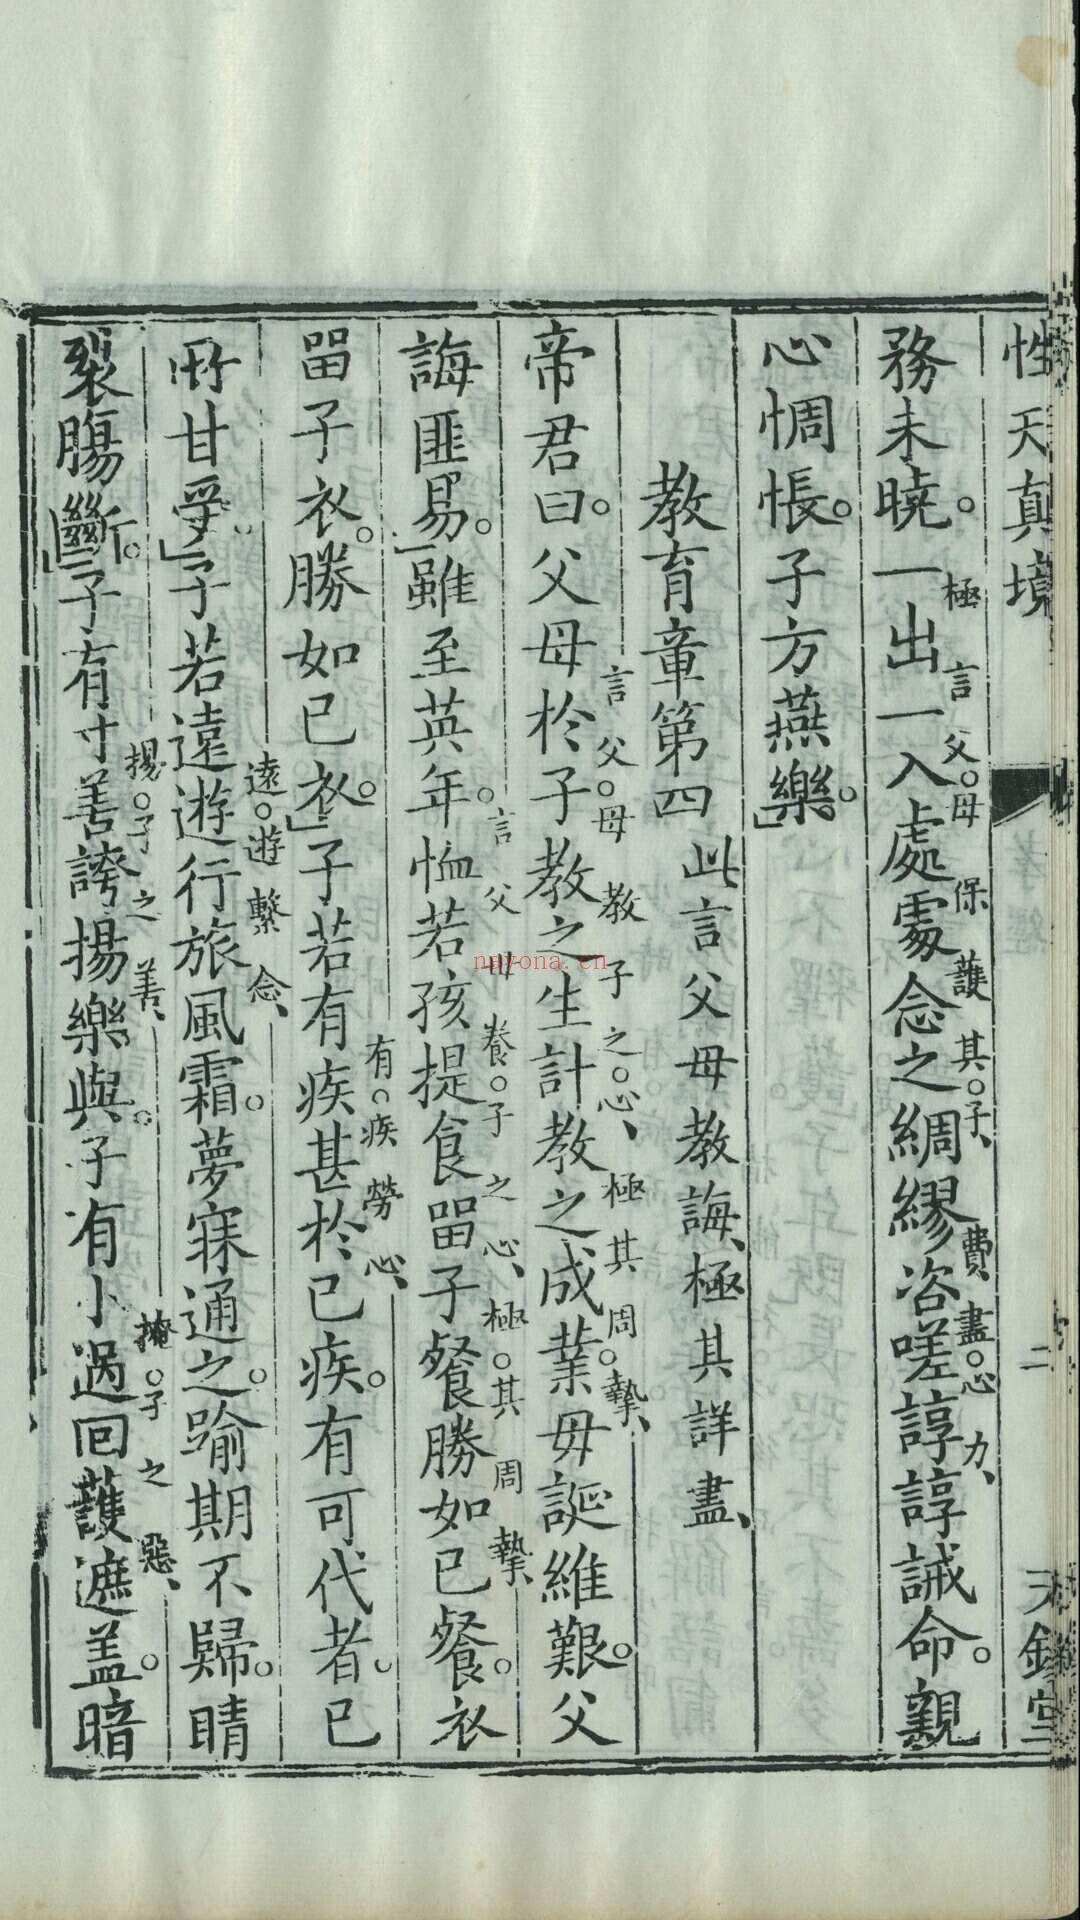 性天真境
二
天鑑堂
務未曉。一出一入處處念之綢繆咨嗟諄諄誡命。親
極言父母保護其子、費盡心力、
心惆悵。子方燕樂。
教育章第四
此言父母教誨、極其詳盡、
帝君曰。父母於子。教之生計教之成業。毋誕維艱。父
言父母教子之心、極其周摯、
誨匪易。雖至英年。恤若孩提食畱子餐勝如已餐。衣
言父母養子之心、極其周摯、
畱子衣。勝如已衣。子若有疾甚於已疾。有可代者。已
有疾勞心、
所甘受。子若遠遊行旅風霜。夢寐通之。踰期不歸。睛
遠遊繫念、
裂腸斷。子有寸善誇揚樂與。子有小過回護遮蓋。暗
揚子之善、掩子之惡、
nayona.cn